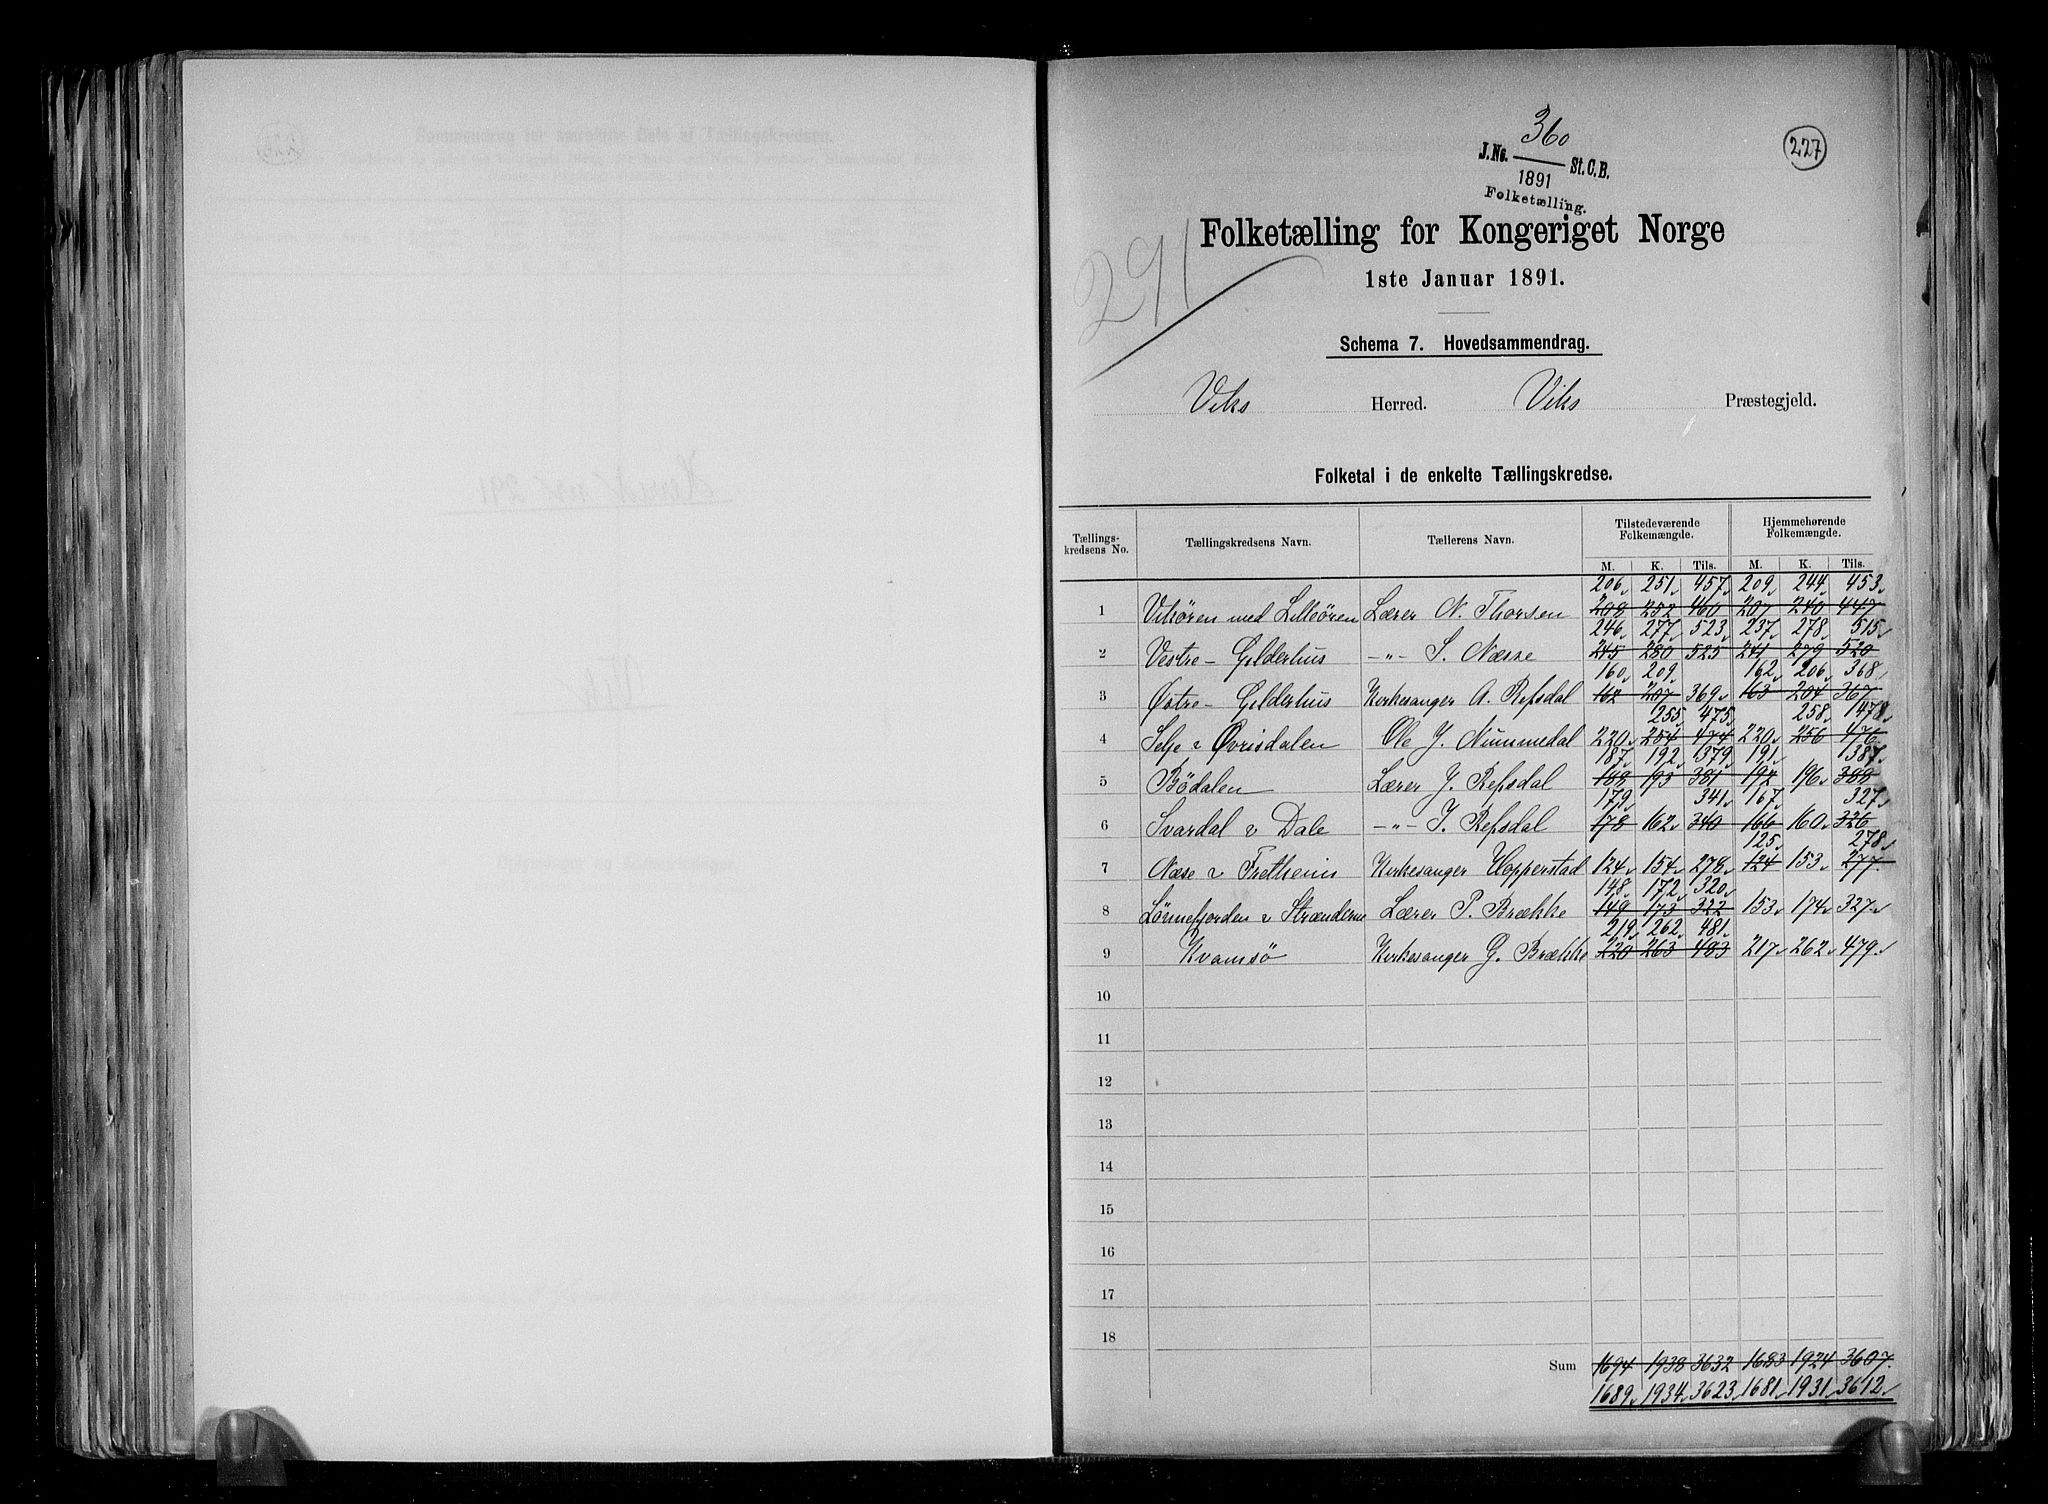 360
J.No. St.C.B.
1891
Folketælling.
227
291
Folketælling for Kongeriget Norge
1ste Januar 1891.
Schema 7. Hovedsammendrag.
Viks Herred. Viks Præstegjeld.
Folketal i de enkelte Tællingskredse.
Tællings-kredsens No. Tællingskredsens Navn. Tællerens Navn. Tilstedeværende Folkemængde. Hjemmehørende Folkemængde.
M. K. Tils. M. K. Tils.
206 251 457 209 244 453
1 Viksören med Lilleören Lærer N. Thorsen 208 252 460 207 240 447
246 277 523 237 278 515
2 Vestre - Gilderhus -"- S. Næsse 245 280 525 241 279 520
160 209 162 206 368
3 Østre - Gilderhus Kirkesanger A. Refsdal 162 207 369 163 204 367
255 475 258 478
4 Selje & Øvrisdalen Ole J. Nummedal 220 254 474 220 256 476
187 192 379 191 387
5 Bödalen Lærer J. Refsdal 188 193 381 192 196 388
179 341 167 327
6 Svardal & Dale -"- I. Refsdal 178 162 340 166 160 326
125 278
7 Næse & Fretheim Kirkesanger Hopperstad 124 154 278 124 153 277
148 172 320
8 Lönnefjorden & Strænderne Lærer P. Brække 149 173 322 153 174 327
219 262 481
9 Kvamsö Kirkesanger G. Brække 220 263 483 217 262 479
10
11
12
13
14
15
16
17
18
Sum 1694 1938 3632 1683 1924 3607
1689 1934 3623 1681 1931 3612